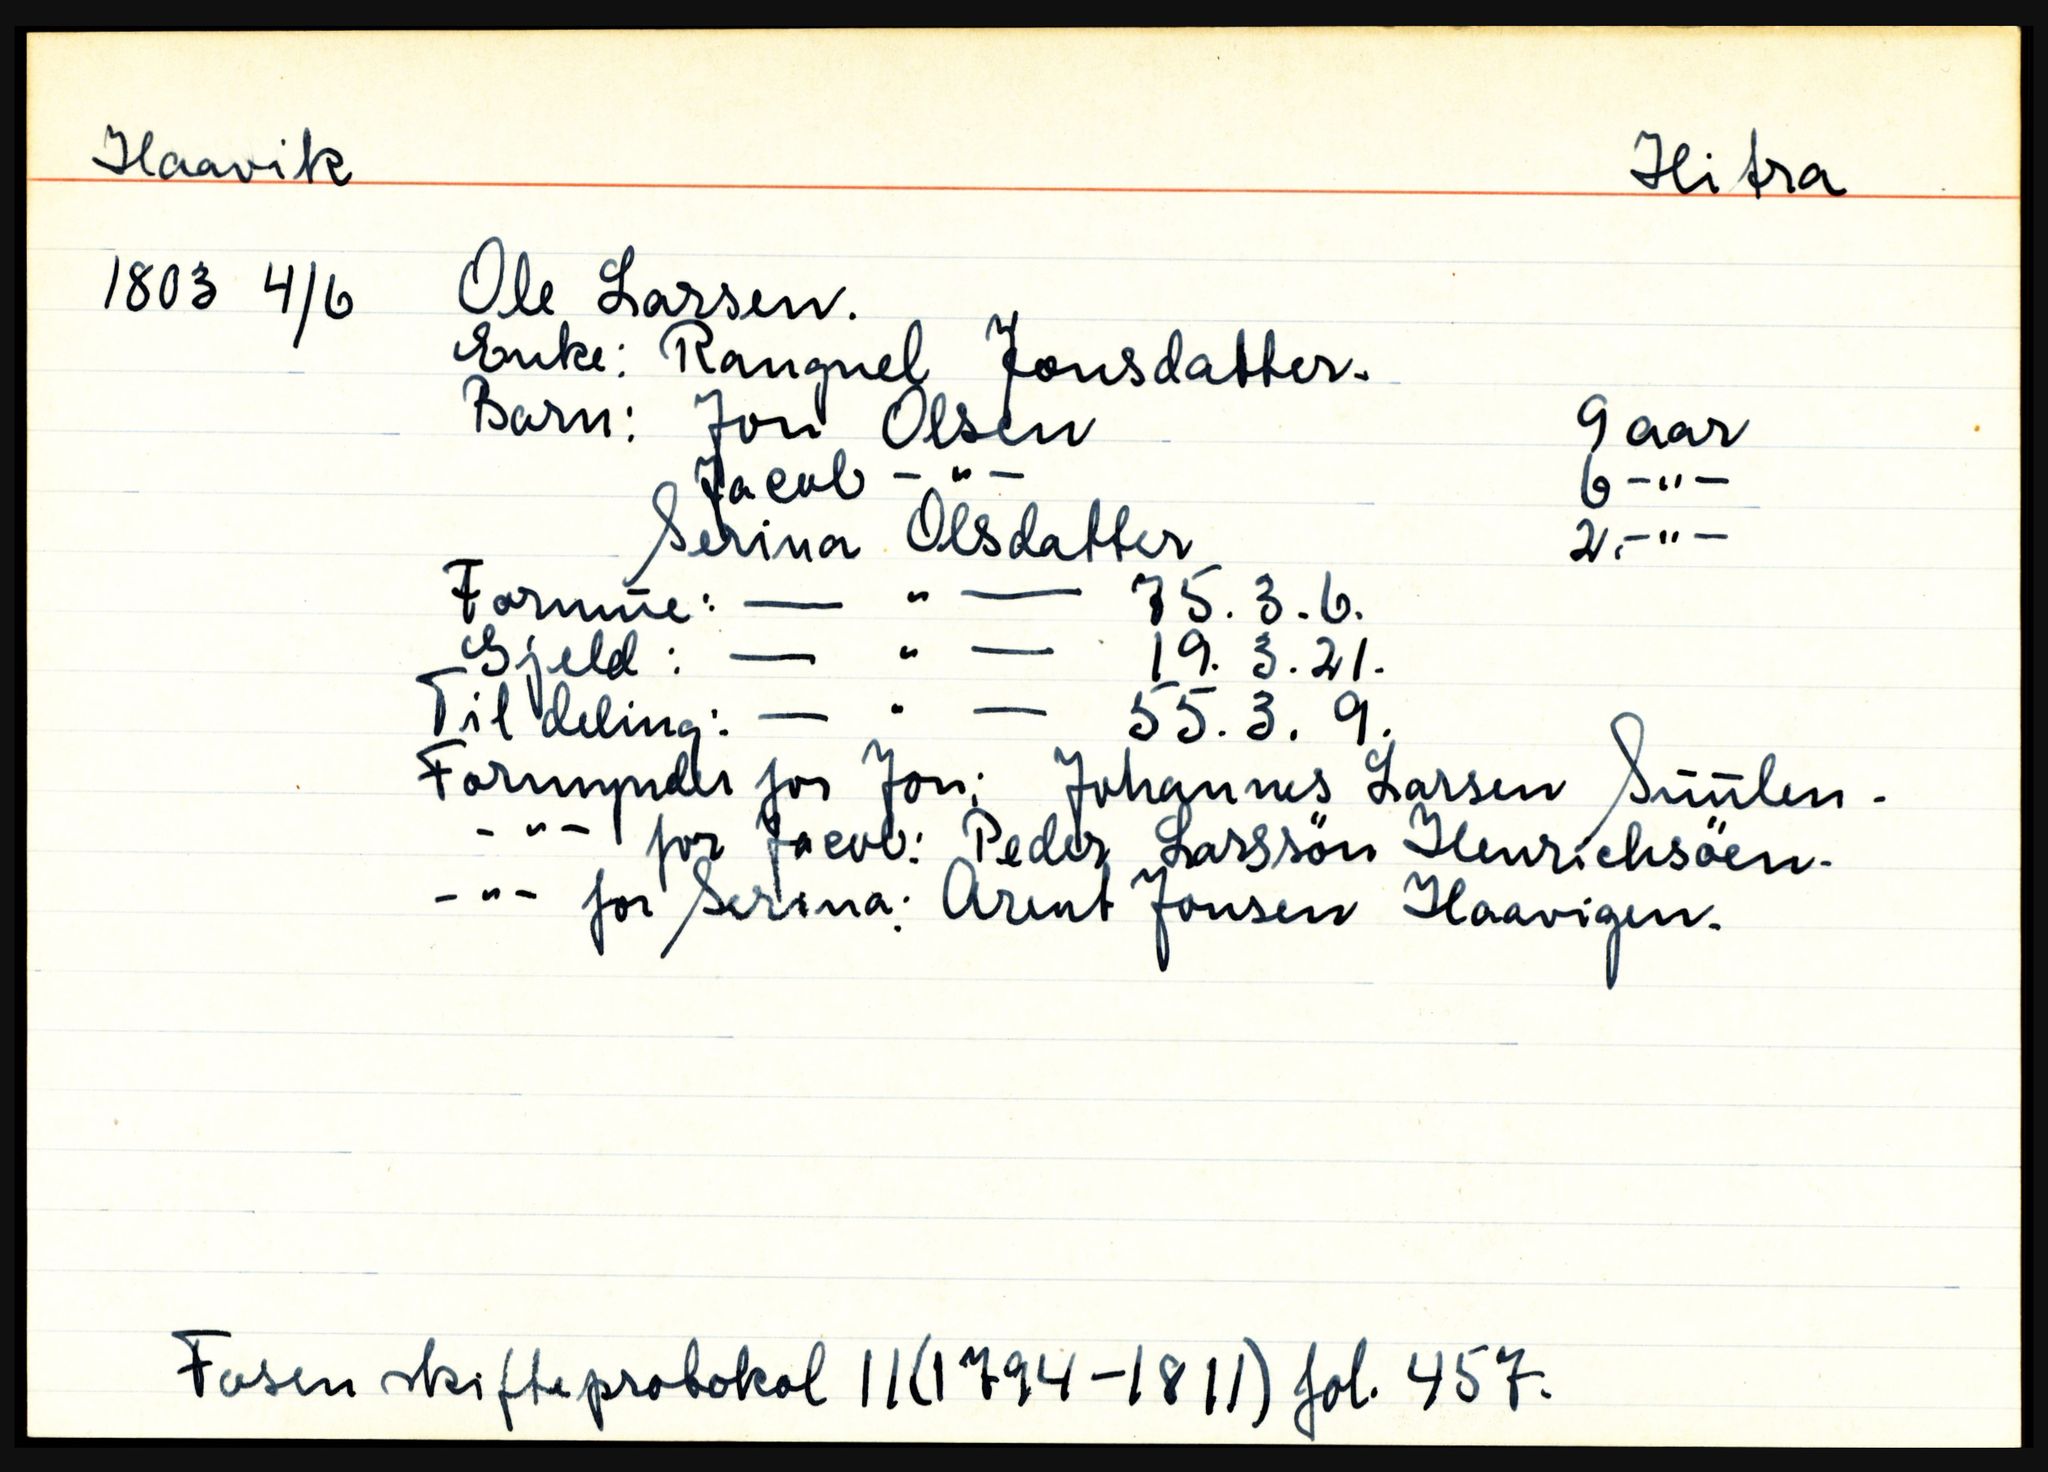 Haavik Hitra
1803 4/6 Ole Larsen.
Enke: Rangnel Jonsdatter.
Barn: Jon Olsen 9 aar
Jacob - " - 6 - " -
Serina Olsdatter 2. - " -
Formue: — " — 75. 3. 6.
Gjeld: — " — 19. 3. 21.
Til deling: — " — 55. 3. 9.
Formynder for Jon: Johannes Larsen Suulen.
- " - for Jacob: Peder Larssön Henrichsöen.
- " - for Serina: Arent Jonsen Haavigen.
Fosen skifteprotokol 11 (1794-1811) fol. 457.